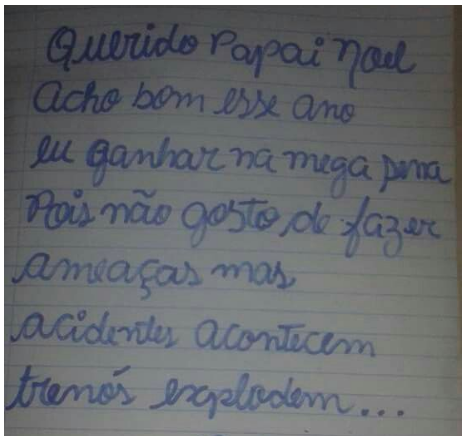 Querido Papai Noel
Acho bom esse ano
eu ganhar na mega sena
Pois não gosto de fazer
ameaças mas
acidentes acontecem
trenós explodem...